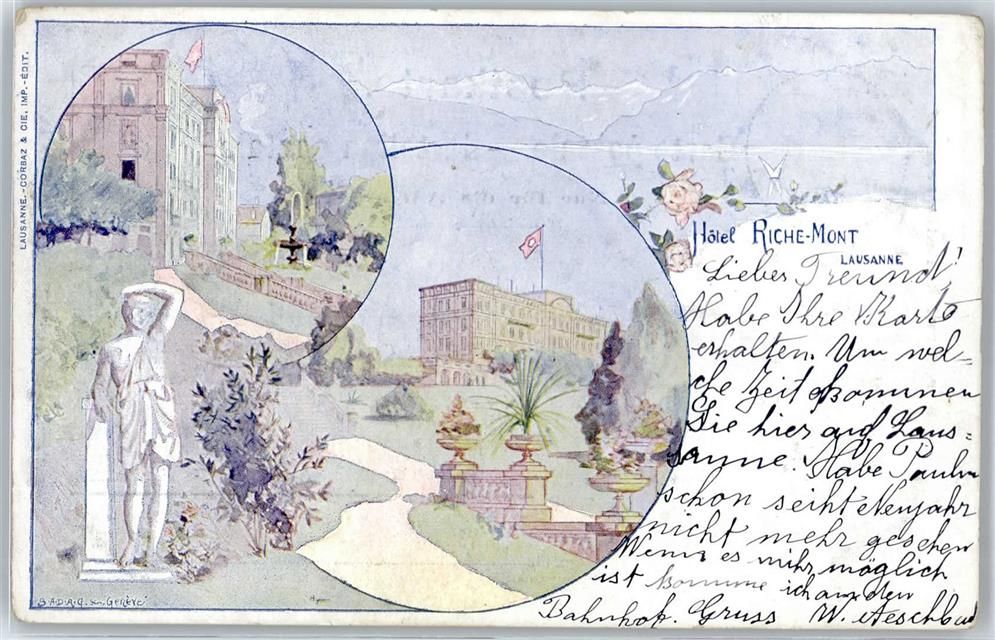 LAUSANNE.-CORBAZ & CIE, IMP.-ÉDIT.
Hôtel RICHE-MONT
LAUSANNE
Lieber Freund!
Habe Ihre Karte
erhalten. Um wel-
che Zeit kommen
Sie hier auf Laus-
sanne. Habe Paulin
schon seiht Neujahr
nicht mehr gesehen
Wenn es mihr möglich
ist komme ich an den
Bahnhof. Gruss W. Aeschb